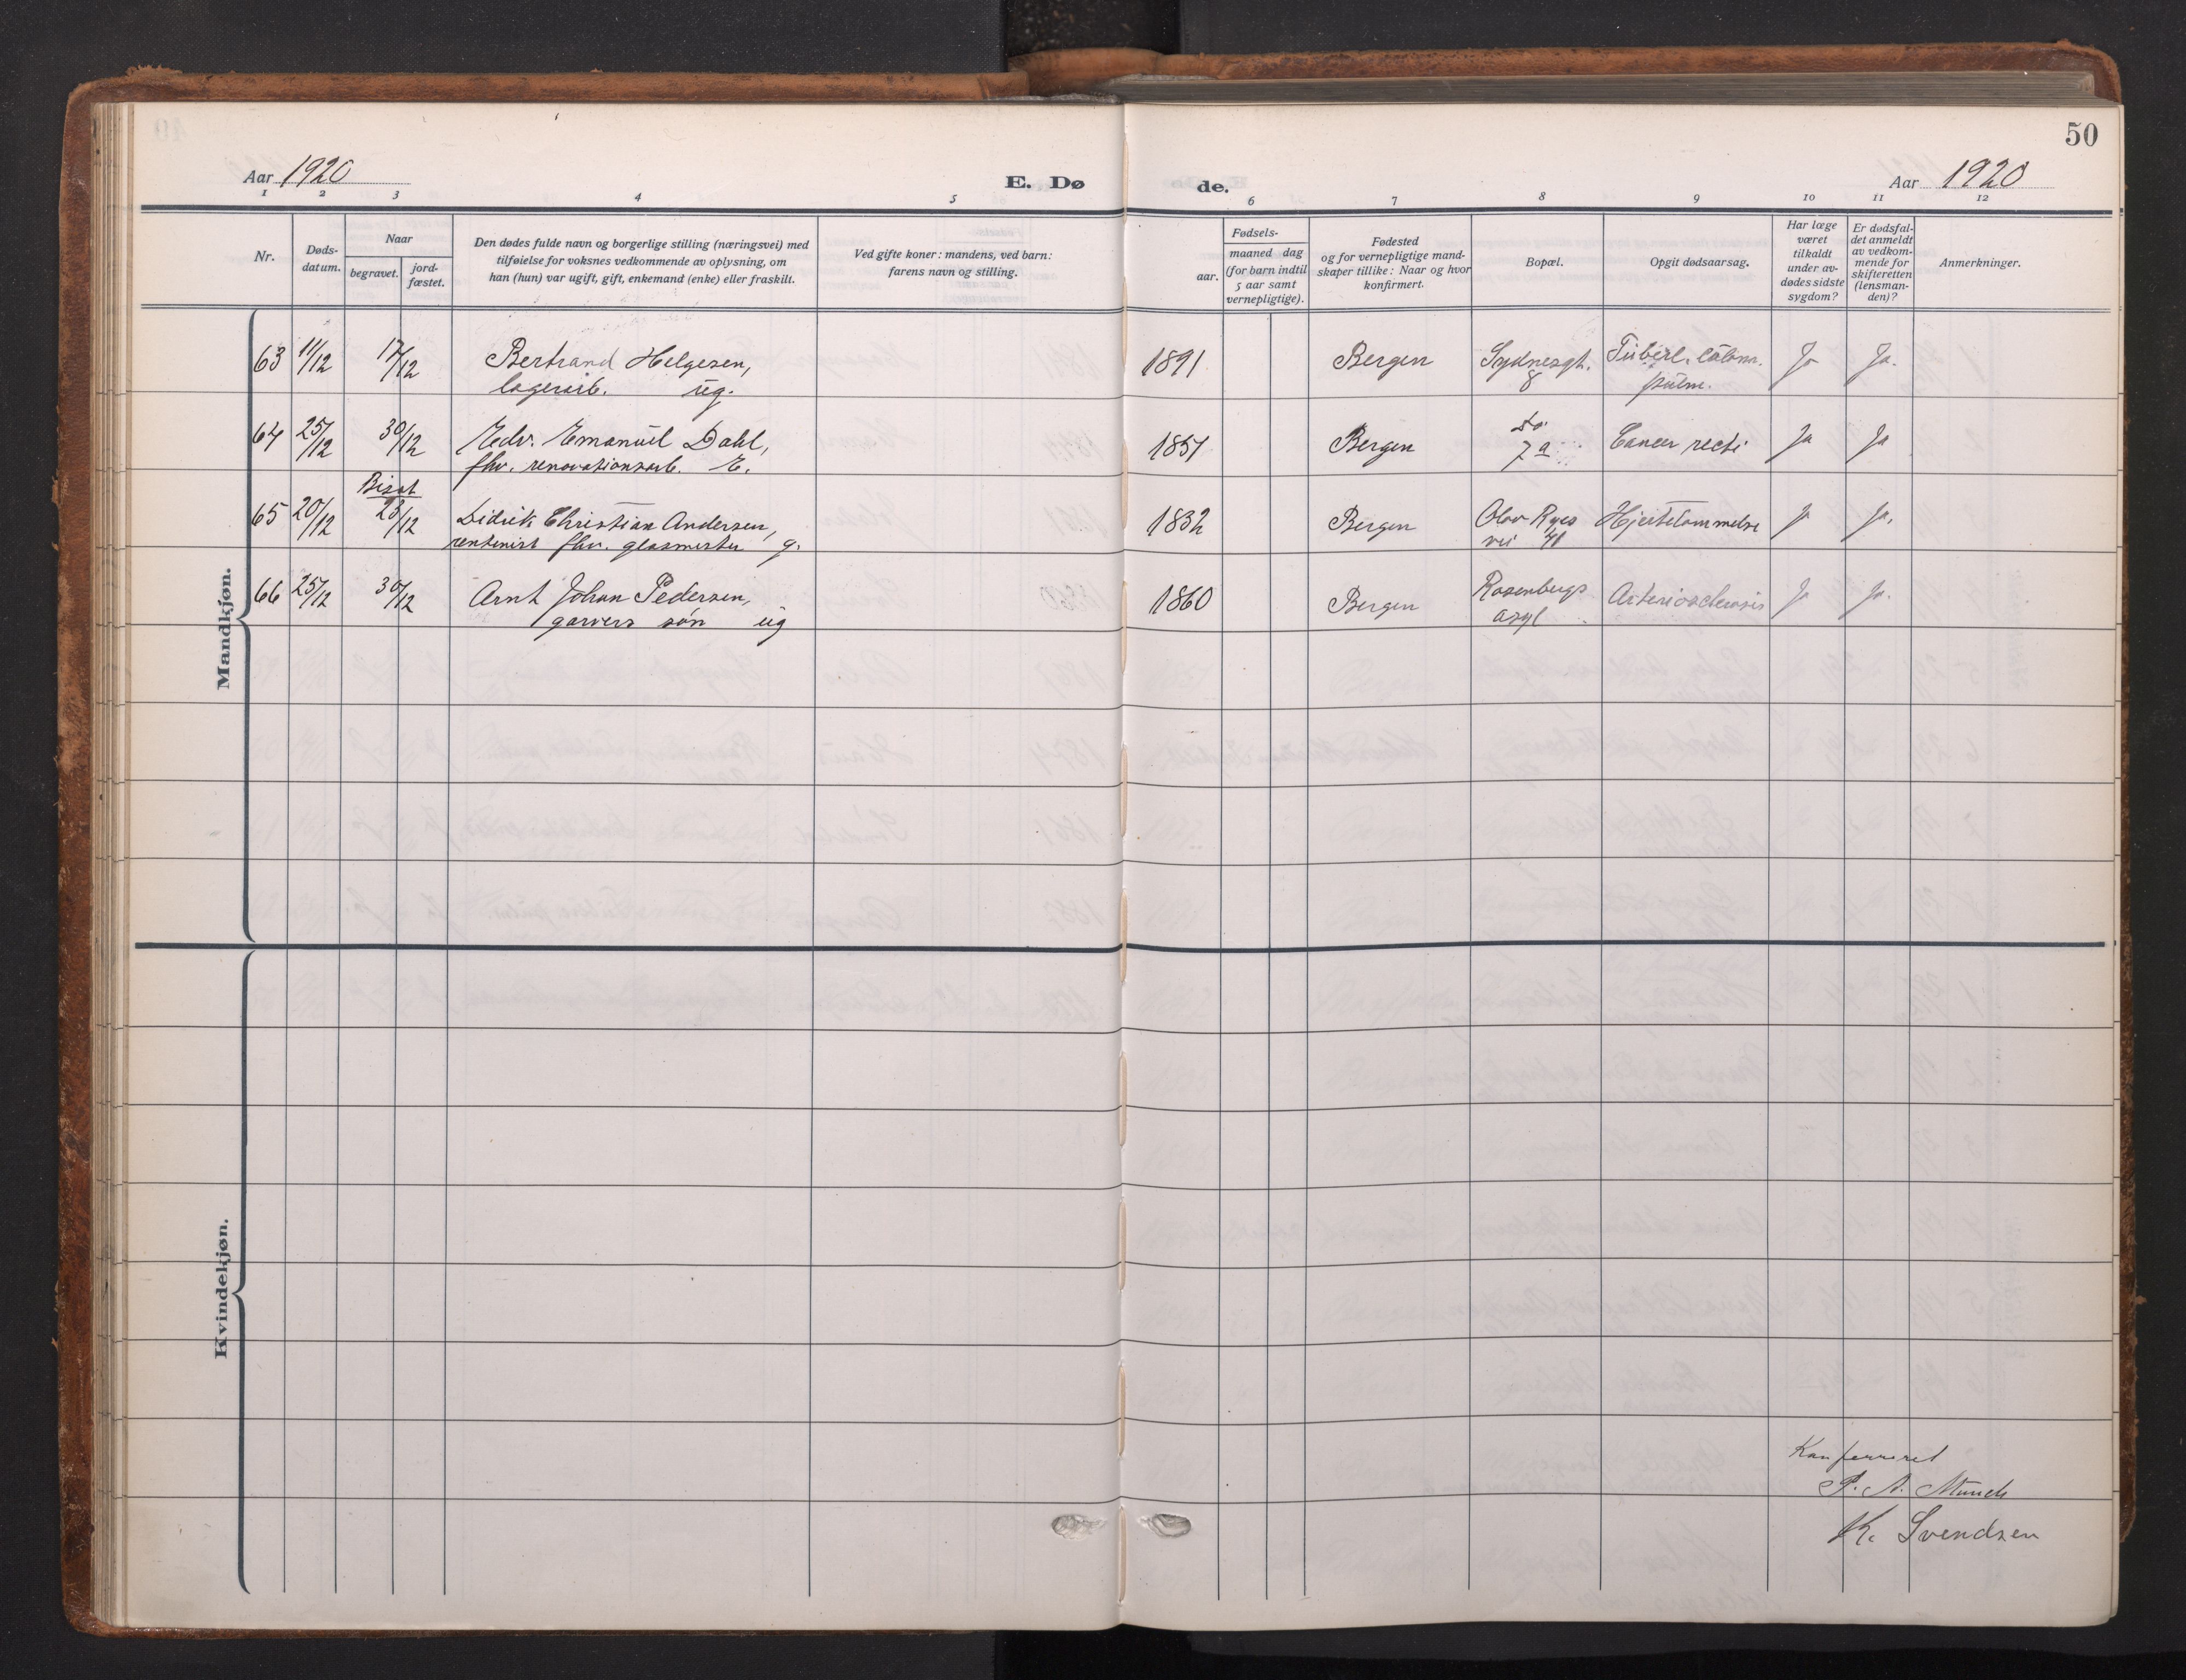 50
Aar 1920
E. Dø
de.
Aar 1920
1 2 3 4 5 6 7 8 9 10 11 12
Nr.
Døds-
datum.
Naar
begravet.
jord-
fæstet.
Den dødes fulde navn og borgerlige stilling (næringsvei) med
tilføielse for voksnes vedkommende av oplysning, om
han (hun) var ugift, gift, enkemand (enke) eller fraskilt.
Ved gifte koner: mandens, ved barn:
farens navn og stilling.
Fødsels-
aar.
maaned dag
(for barn indtil
5 aar samt
vernepligtige).
Fødested
og for vernepligtige mand-
skaper tillike: Naar og hvor
konfirmert.
Bopæl.
Opgit dødsaarsag.
Har læge
været
tilkaldt
under av-
dødes sidste
sygdom?
Er dødsfal-
det anmeldt
av vedkom-
mende for
skifteretten
(lensman-
den)?
Anmerkninger.
Mandkjøn.
63 11/12 17/12 Bertrand Helgesen, 1891 Bergen Sydnesgt. Tuberl. pulm. Ja Ja.
lagerarb. ug. 8
64 25/12 30/12 Edv. Emanuel Dahl, 1851 Bergen do. Cancer recti Ja Ja
fhv. renovationsarb. E. 7 a
Bisat
65 20/12 23/12 Didrik Christian Andersen, 1832 Bergen Olav Ryes Hjertelammelse Ja Ja.
rentenist fhv. glasmester g. vei 41
66 25/12 30/12 Arnt Johan Pedersen, 1860 Bergen Rosenbergs Arteriosclerosis Ja Ja.
garvers søn ug asyl
Kvindekjøn.
Konfereret
P. A. Munch
K. Svendsen